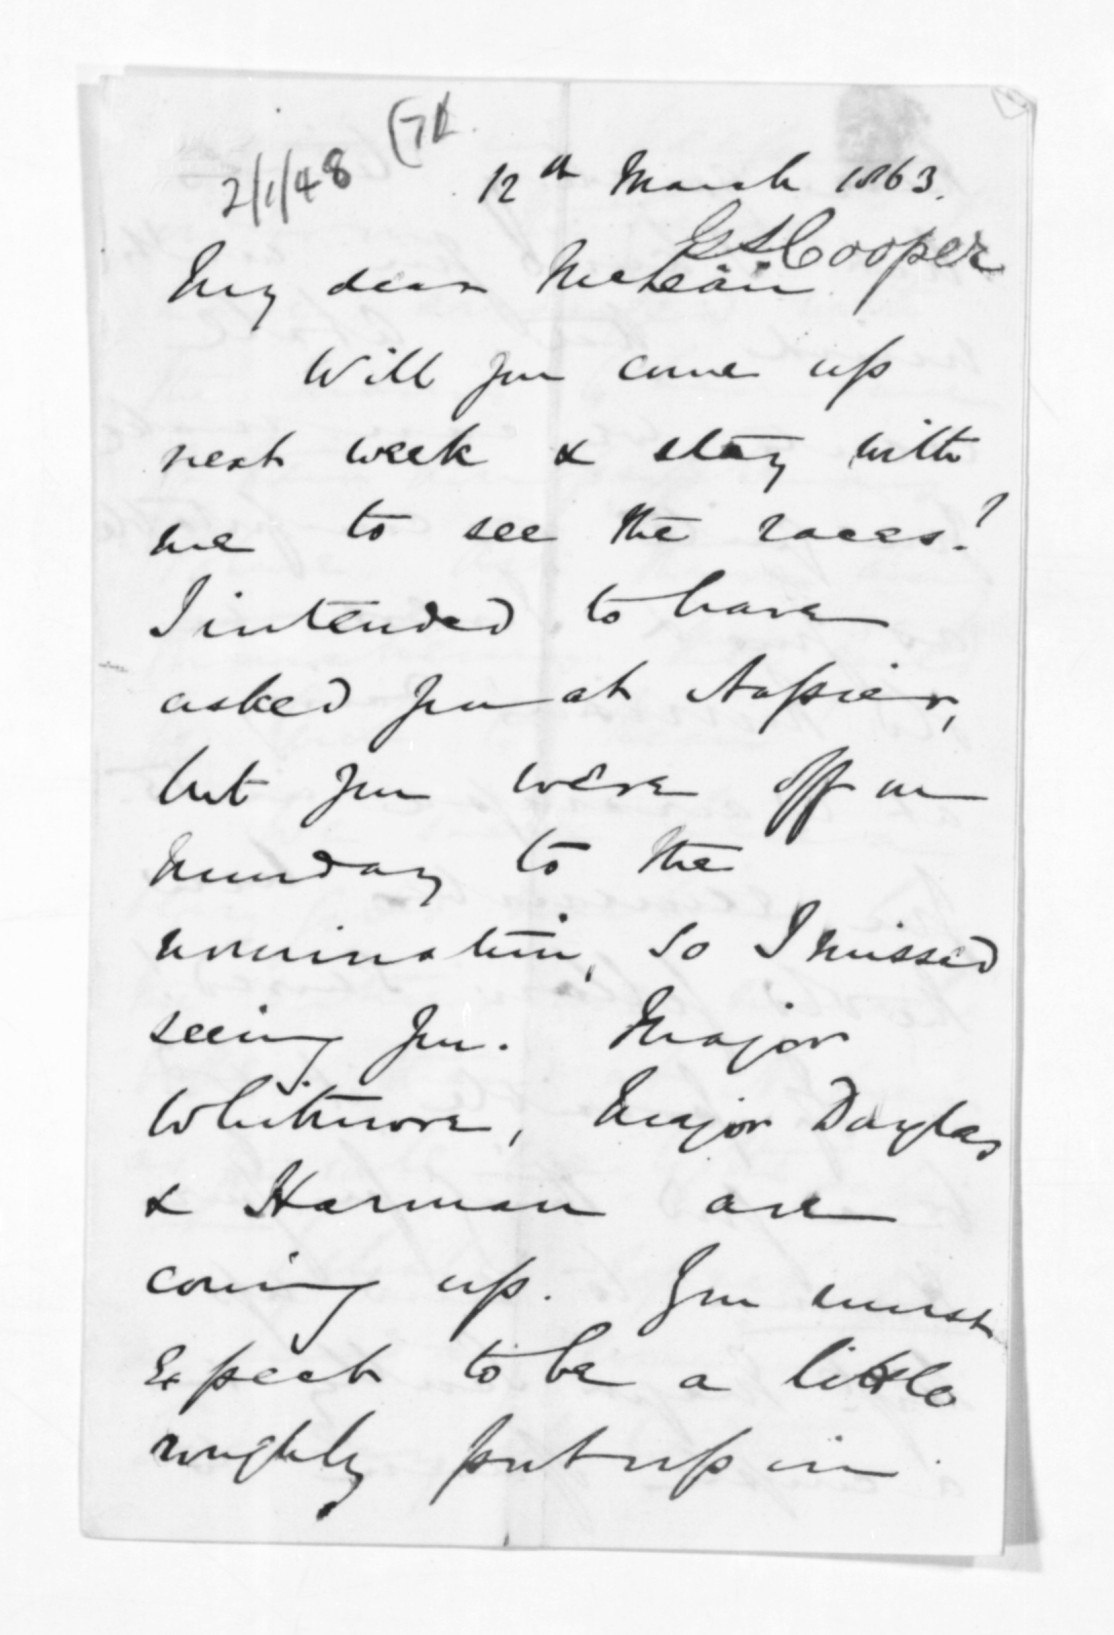 2/1/48
12th March 1863.
G S Cooper
My dear McLean
Will you come up
next week & stay with
me to see the races?
I intended to have
asked you at Napier,
but you were off on
Monday to the
nomination, so I missed
seeing you. Major
Whitmore, Major Douglas
& Harman are
coming up. You must
expect to be a little
roughly put up in